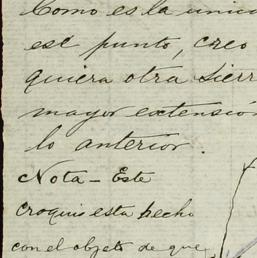 Como es la única
est punto, creo
quiera otra sierr
mayor extensión
lo anterior.
Nota - Este
croquis esta hecho
con el objeto de que